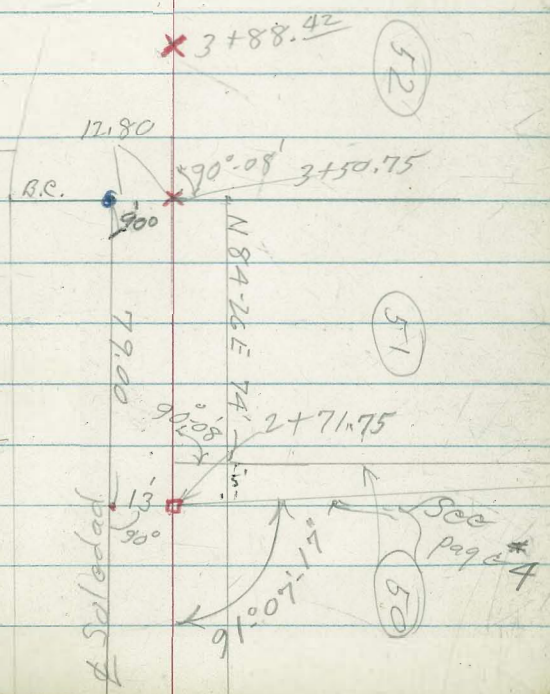 3+88.42
52
12.80
90°-08'
3+50.75
B.C.
90°
N 84-26 E 74'
79.00
51
90°-08'
2+71.75
5'
13'
90°
See
page #4
50
91°-07'-17"
℄ Soledad